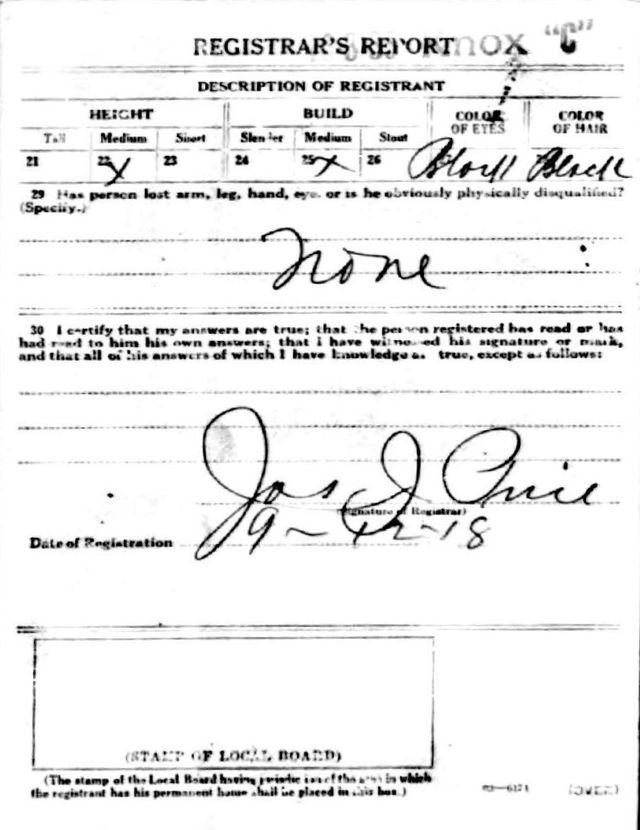 REGISTRAR'S REPORT "C"
DESCRIPTION OF REGISTRANT
HEIGHT BUILD COLOR OF EYES COLOR OF HAIR
Tall Medium Short Slender Medium Stout
21 22 X 23 24 25 X 26 Black Black
29 Has person lost arm, leg, hand, eye, or is he obviously physically disqualified?
(Specify.)
None
30 I certify that my answers are true; that the person registered has read or has
had read to him his own answers; that I have witnessed his signature or mark,
and that all of his answers of which I have knowledge are true, except as follows:
Jas J Price
(Signature of Registrar)
Date of Registration 9-12-18
(STAMP OF LOCAL BOARD)
(The stamp of the Local Board having jurisdiction of the area in which
the registrant has his permanent home shall be placed in this box.)
(OVER)